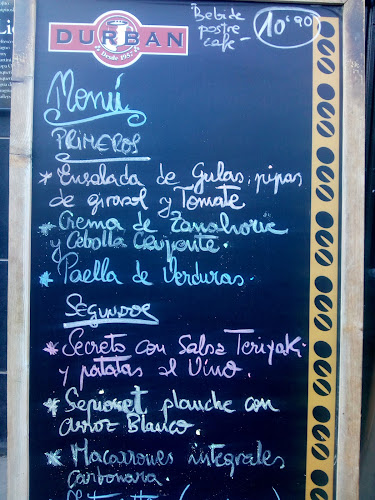 DURBAN
Desde 1957
Bebida
postre
cafe -
10'90
Menú
PRIMEROS
* Ensalada de Gulas, pipas
de girasol y Tomate
* Crema de Zanahoria
y Cebolla Crujiente.
* Paella de Verduras.
SEGUNDOS
* Secreto con Salsa Teriyaki
y patatas al Vino.
* Sepionet plancha con
arroz Blanco.
* Macarrones integrales
carbonara.